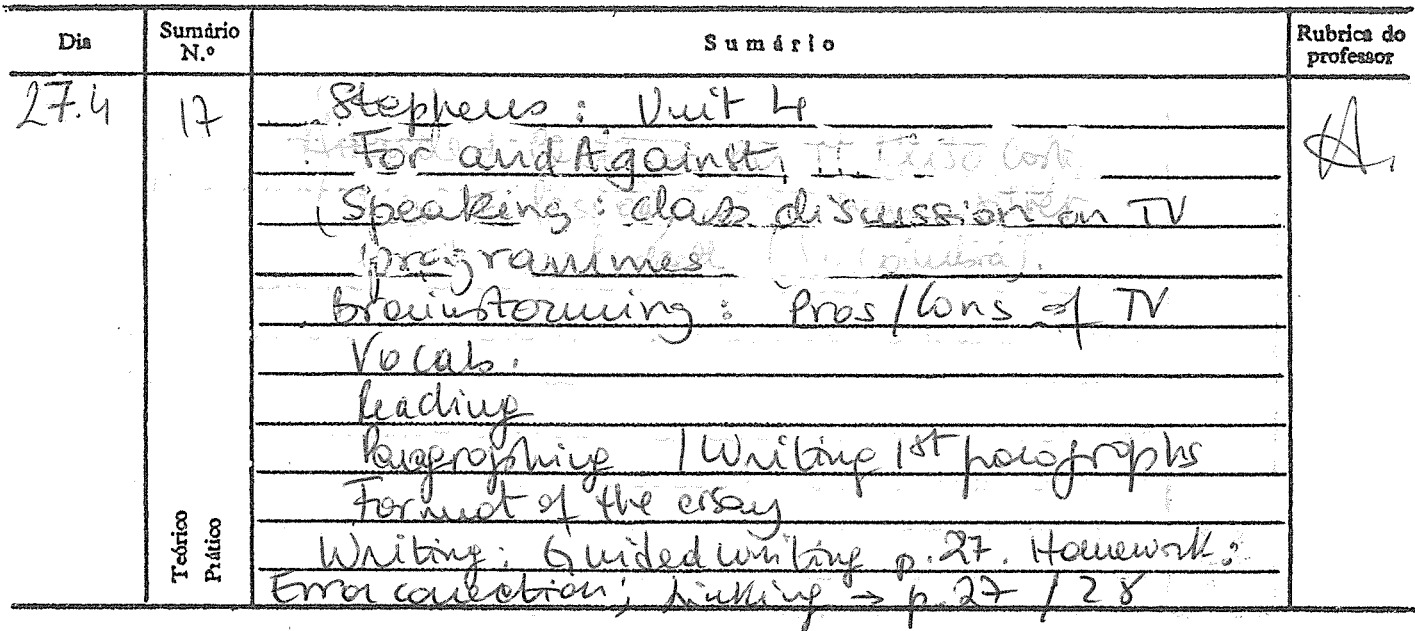 Dia Sumário N.º Sumário Rubrica do professor
27.4 17 Stephens : Unit 4
For and Against,
(Speaking : class discussion on TV
programmes
Brainstorming : Pros / Cons of TV
Vocab.
Reading
Paragraphing / Writing 1st paragraphs
Format of the essay
Writing: Guided writing p. 27. Homework:
Error correction; Linking → p. 27 / 28
Teórico
Prático